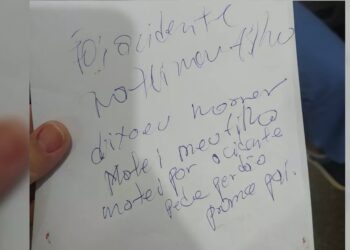 Foi acidente
Matei meu filho
dixoeu morrer
Matei meu filho
matei por acidente
peça perdão
prome pai.